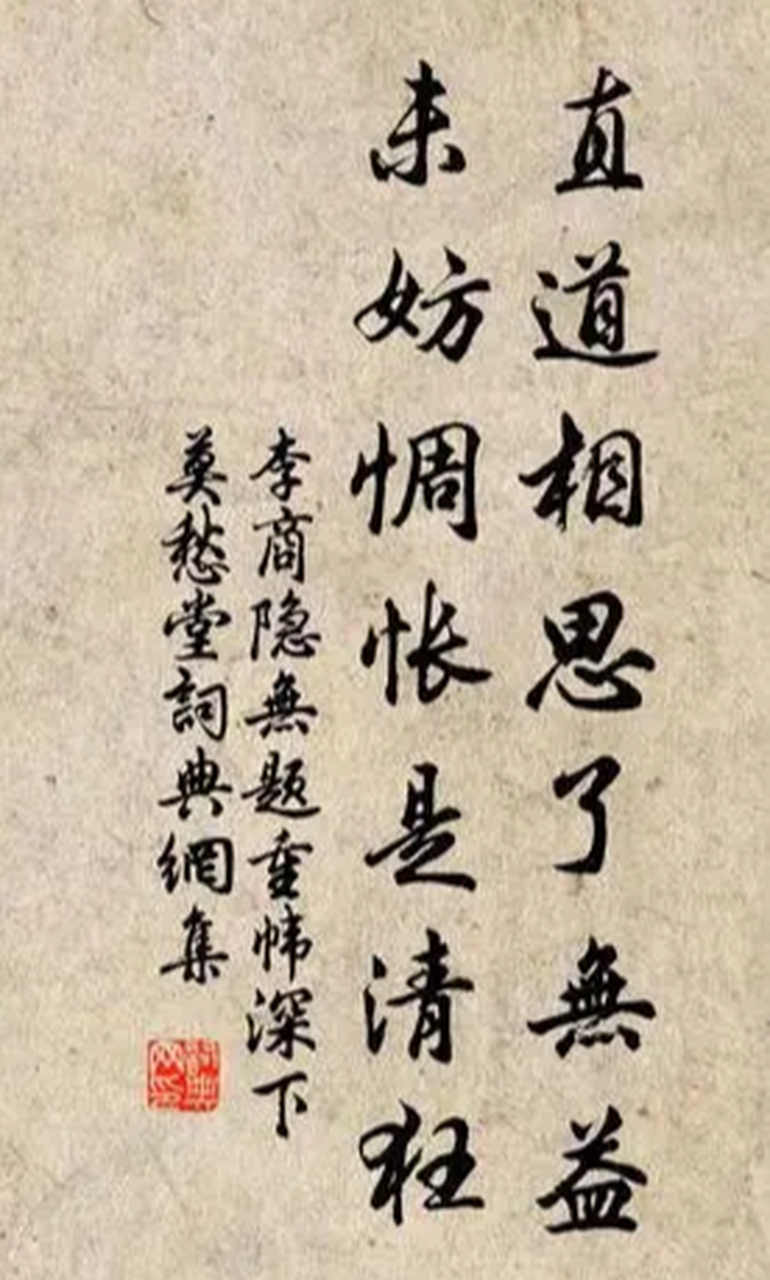 直道相思了無益
未妨惆悵是清狂
李商隐無题重帏深下
莫愁堂詞典網集